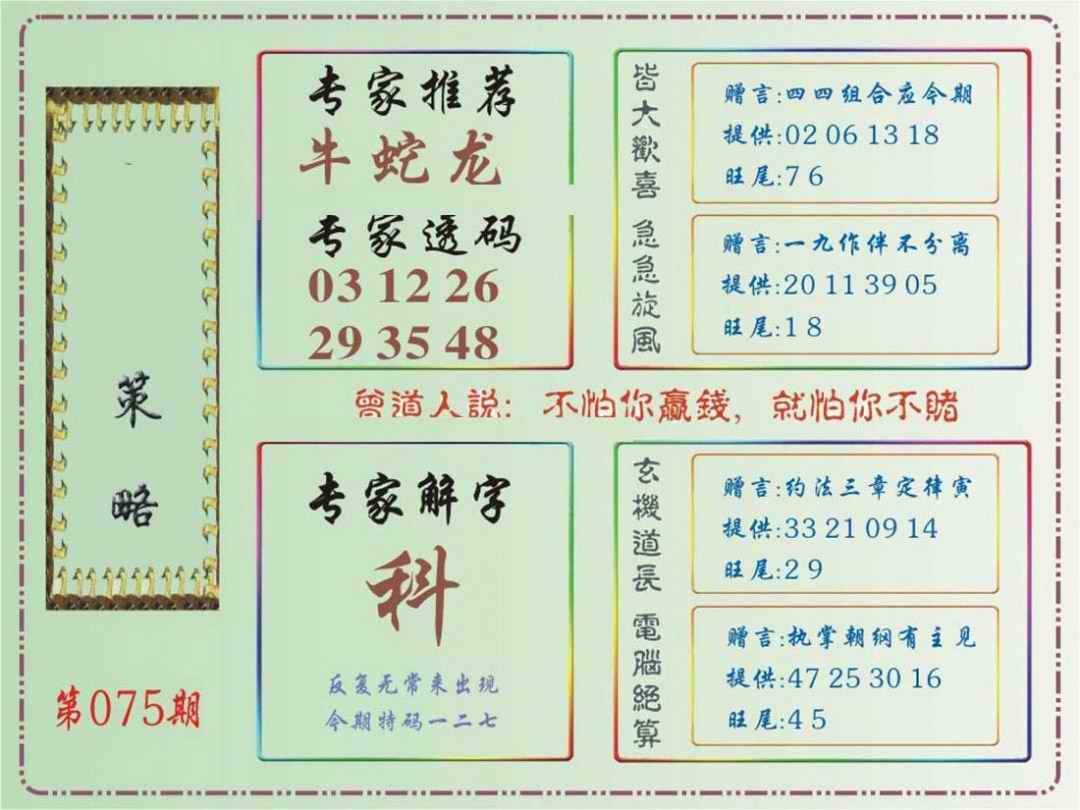 策略
第075期
专家推荐
牛蛇龙
专家透码
03 12 26
29 35 48
皆大歡喜
赠言:四四组合应今期
提供:02 06 13 18
旺尾:7 6
急急旋風
赠言:一九作伴不分离
提供:20 11 39 05
旺尾:1 8
曾道人説: 不怕你贏錢, 就怕你不賭
专家解字
科
反复无常来出现
今期特码一二七
玄機道長
赠言:约法三章定律寅
提供:33 21 09 14
旺尾:2 9
電腦絕算
赠言:执掌朝纲有主见
提供:47 25 30 16
旺尾:4 5